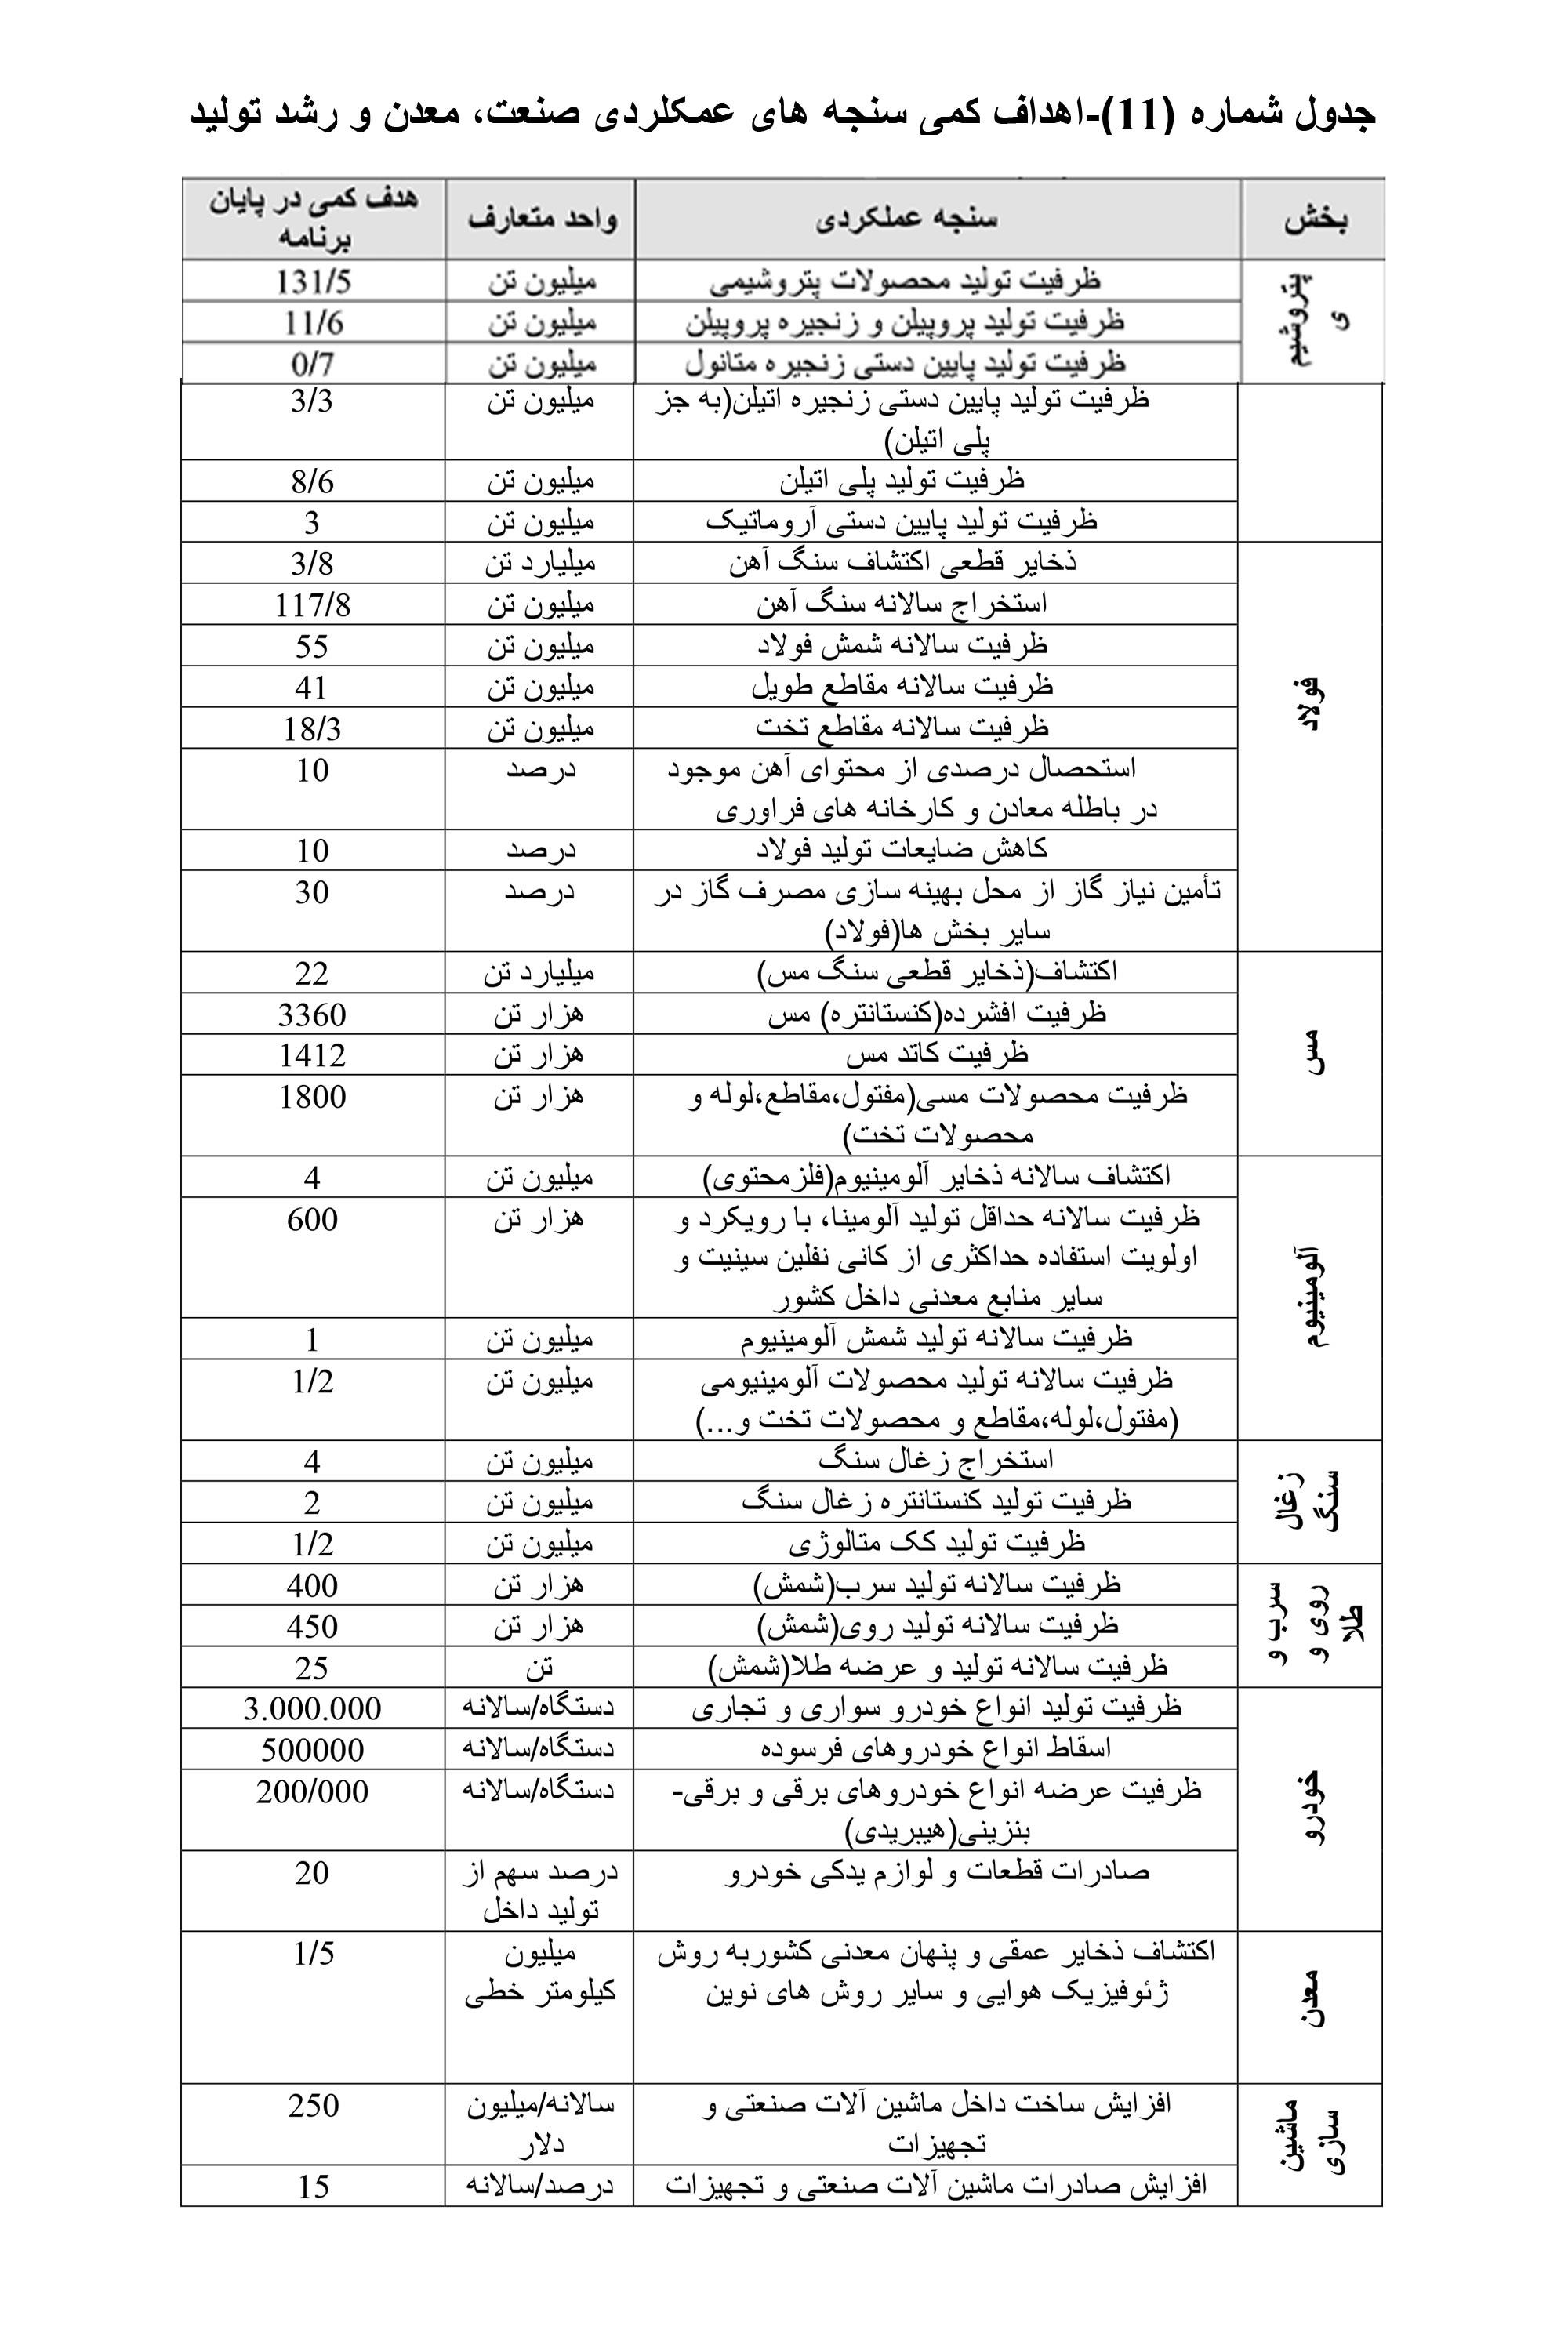 جدول شماره (11)-اهداف کمی سنجه های عمکلردی صنعت، معدن و رشد تولید
بخش
سنجه عملکردی
واحد متعارف
هدف کمی در پایان
برنامه
پتروشیم
ی
ظرفیت تولید محصولات پتروشیمی
میلیون تن
131/5
ظرفیت تولید پروپیلن و زنجیره پروپیلن
میلیون تن
11/6
ظرفیت تولید پایین دستی زنجیره متانول
میلیون تن
0/7
ظرفیت تولید پایین دستی زنجیره اتیلن(به جز
پلی اتیلن)
میلیون تن
3/3
ظرفیت تولید پلی اتیلن
میلیون تن
8/6
ظرفیت تولید پایین دستی آروماتیک
میلیون تن
3
فولاد
ذخایر قطعی اکتشاف سنگ آهن
میلیارد تن
3/8
استخراج سالانه سنگ آهن
میلیون تن
117/8
ظرفیت سالانه شمش فولاد
میلیون تن
55
ظرفیت سالانه مقاطع طویل
میلیون تن
41
ظرفیت سالانه مقاطع تخت
میلیون تن
18/3
استحصال درصدی از محتوای آهن موجود
در باطله معادن و کارخانه های فراوری
درصد
10
کاهش ضایعات تولید فولاد
درصد
10
تأمین نیاز گاز از محل بهینه سازی مصرف گاز در
سایر بخش ها(فولاد)
درصد
30
مس
اکتشاف(ذخایر قطعی سنگ مس)
میلیارد تن
22
ظرفیت افشرده(کنستانتره) مس
هزار تن
3360
ظرفیت کاتد مس
هزار تن
1412
ظرفیت محصولات مسی(مفتول،مقاطع،لوله و
محصولات تخت)
هزار تن
1800
آلومینیوم
اکتشاف سالانه ذخایر آلومینیوم(فلزمحتوی)
میلیون تن
4
ظرفیت سالانه حداقل تولید آلومینا، با رویکرد و
اولویت استفاده حداکثری از کانی نفلین سینیت و
سایر منابع معدنی داخل کشور
هزار تن
600
ظرفیت سالانه تولید شمش آلومینیوم
میلیون تن
1
ظرفیت سالانه تولید محصولات آلومینیومی
(مفتول،لوله،مقاطع و محصولات تخت و...)
میلیون تن
1/2
زغال
سنگ
استخراج زغال سنگ
میلیون تن
4
ظرفیت تولید کنستانتره زغال سنگ
میلیون تن
2
ظرفیت تولید کک متالوژی
میلیون تن
1/2
سرب و
روی و
طلا
ظرفیت سالانه تولید سرب(شمش)
هزار تن
400
ظرفیت سالانه تولید روی(شمش)
هزار تن
450
ظرفیت سالانه تولید و عرضه طلا(شمش)
تن
25
خودرو
ظرفیت تولید انواع خودرو سواری و تجاری
دستگاه/سالانه
3.000.000
اسقاط انواع خودروهای فرسوده
دستگاه/سالانه
500000
ظرفیت عرضه انواع خودروهای برقی و برقی-
بنزینی(هیبریدی)
دستگاه/سالانه
200/000
صادرات قطعات و لوازم یدکی خودرو
درصد سهم از
تولید داخل
20
معدن
اکتشاف ذخایر عمقی و پنهان معدنی کشوربه روش
ژئوفیزیک هوایی و سایر روش های نوین
میلیون
کیلومتر خطی
1/5
ماشین
سازی
افزایش ساخت داخل ماشین آلات صنعتی و
تجهیزات
سالانه/میلیون
دلار
250
افزایش صادرات ماشین آلات صنعتی و تجهیزات
درصد/سالانه
15